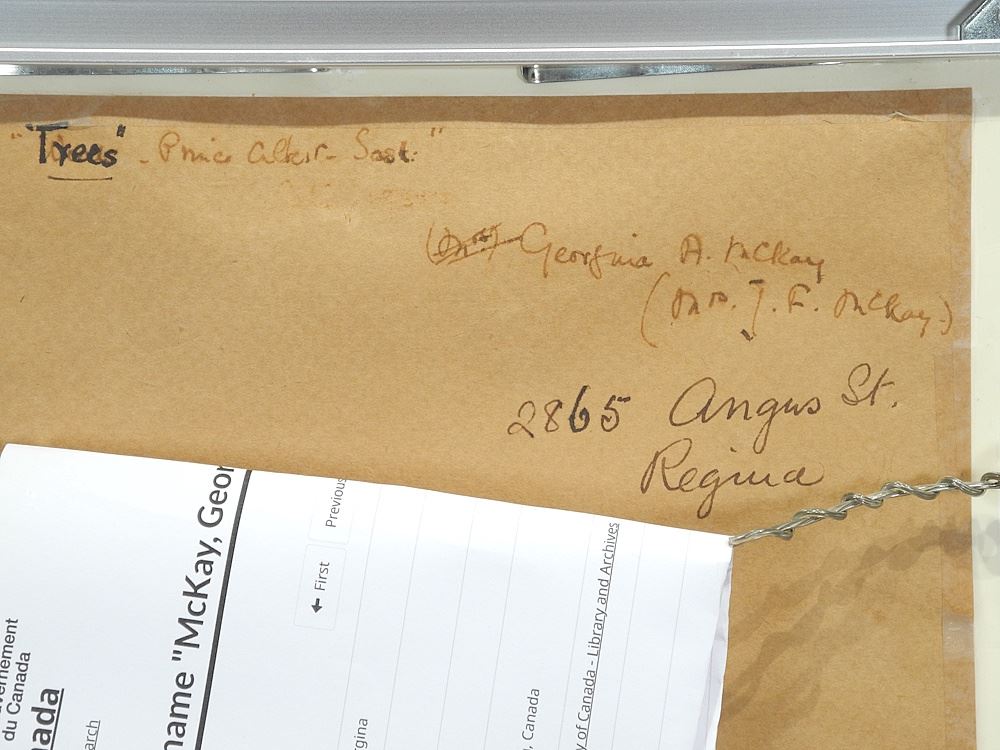 "Trees" - Prince Albert - Sask."
(Mrs) Georgina A. McKay
(Mrs. J. F. McKay)
2865 Angus St.
Regina
name "McKay, Geor
← First
Previous
vernement
du Canada
nada
arch
rgina
, Canada
y of Canada - Library and Archives